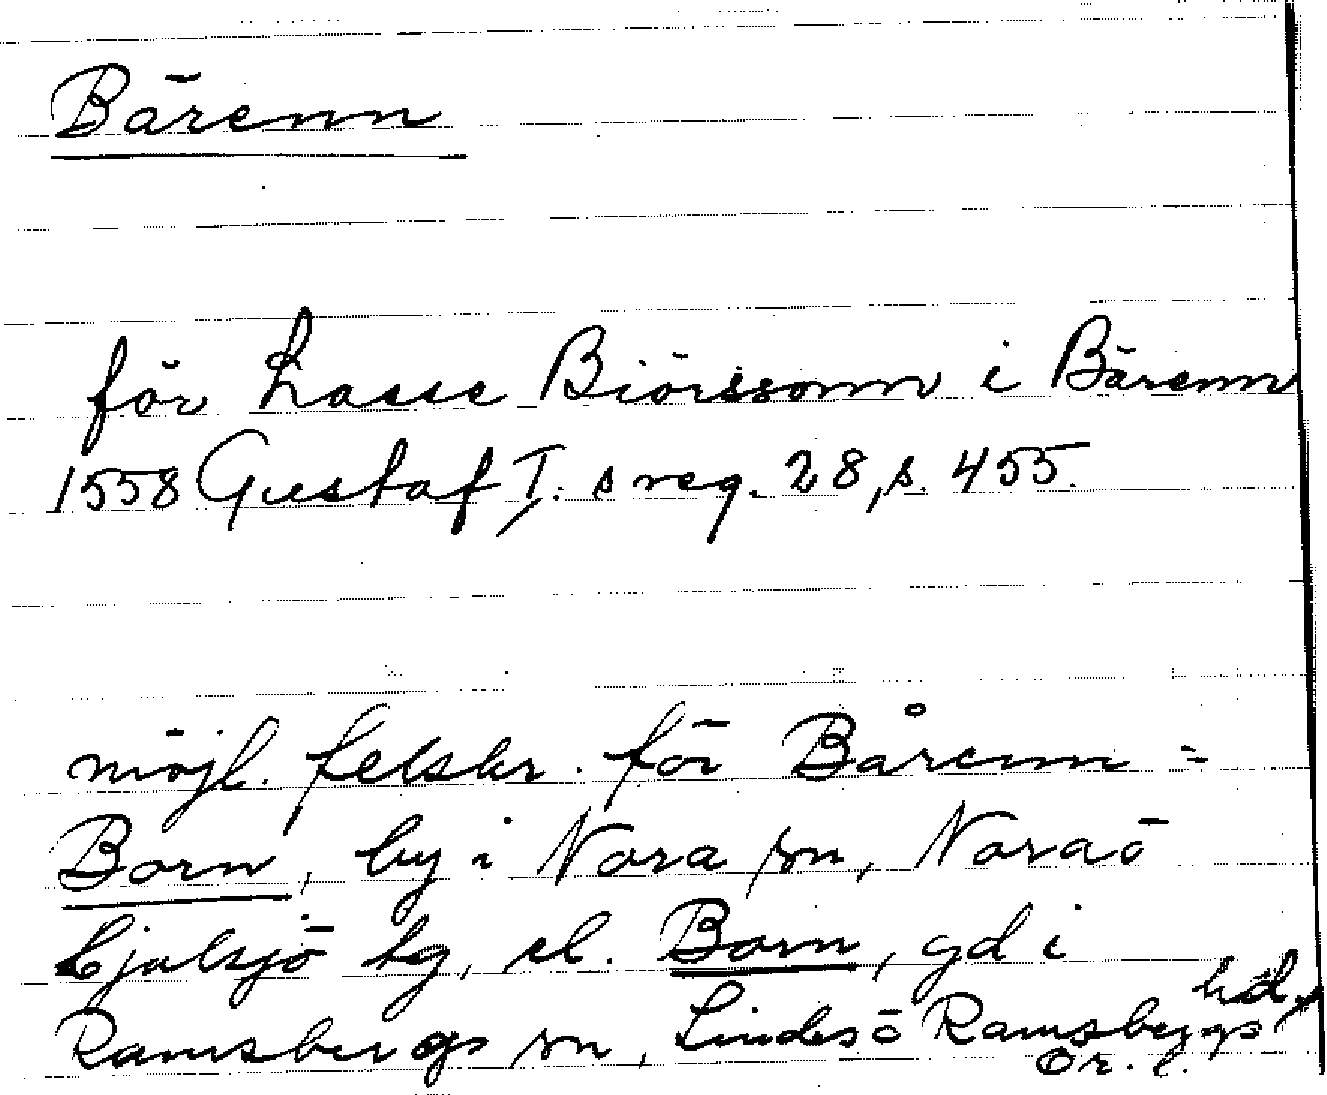 Bärenn
för Lasse Biörssonn i Bärenn
1558 Gustaf I:s reg. 28, s. 455.
möjl. felskr. för Bårenn =
Born, by i Nora sn, Nora o
Hjulsjö bg, el. Born, gd i
Ramsbergs sn, Lindes o Ramsbergs hd,
Ör. l.